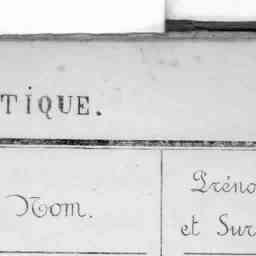 TIQUE.
Nom.
Préno
et Sur